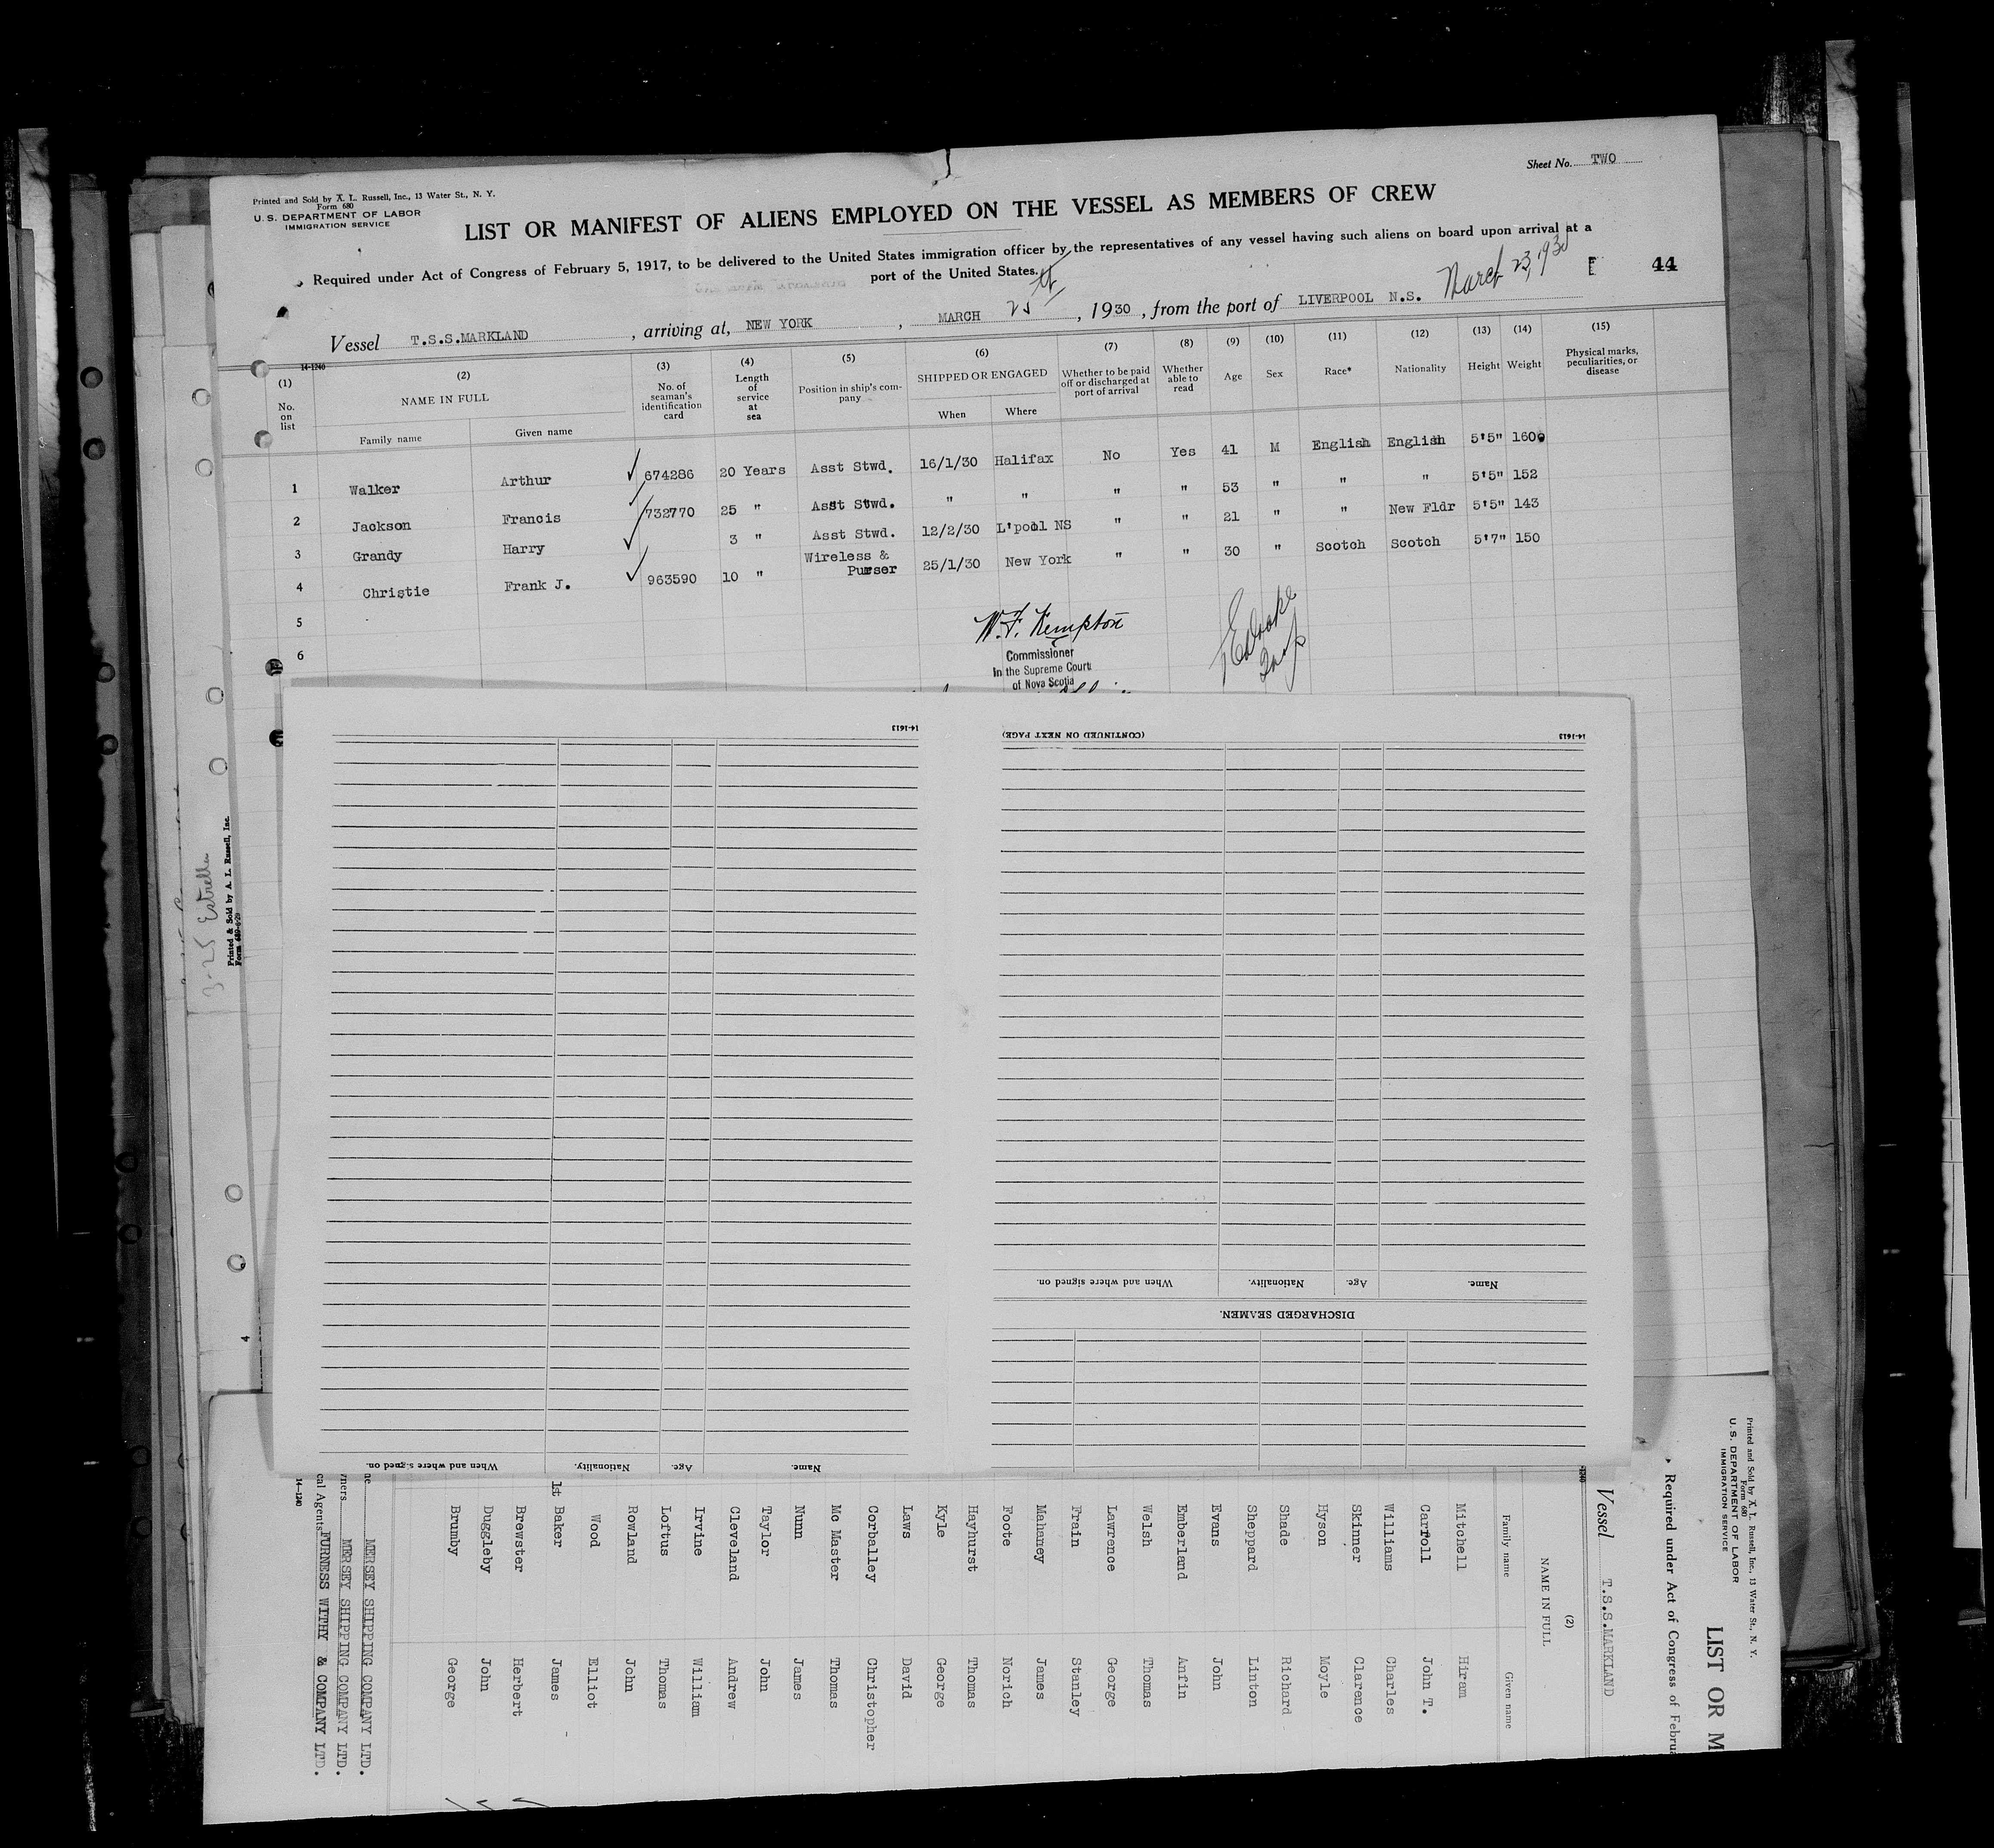 Sheet No. TWO
Printed and Sold by A. L. Russell, Inc., 13 Water St., N. Y.
Form 680
U. S. DEPARTMENT OF LABOR
IMMIGRATION SERVICE
LIST OR MANIFEST OF ALIENS EMPLOYED ON THE VESSEL AS MEMBERS OF CREW
Required under Act of Congress of February 5, 1917, to be delivered to the United States immigration officer by the representatives of any vessel having such aliens on board upon arrival at a
port of the United States.
March 23, 1930
44
Vessel T.S.S.MARKLAND , arriving at, NEW YORK , MARCH 25th , 1930 , from the port of LIVERPOOL N.S.
14-1240
(1) (2) (3) (4) (5) (6) (7) (8) (9) (10) (11) (12) (13) (14) (15)
No. on list NAME IN FULL No. of seaman's identification card Length of service at sea Position in ship's company SHIPPED OR ENGAGED Whether to be paid off or discharged at port of arrival Whether able to read Age Sex Race* Nationality Height Weight Physical marks, peculiarities, or disease
Family name Given name When Where
1 Walker Arthur 674286 20 Years Asst Stwd. 16/1/30 Halifax No Yes 41 M English English 5'5" 160
2 Jackson Francis 732770 25 " Asst Stwd. " " " " 53 " " " 5'5" 152
3 Grandy Harry 3 " Asst Stwd. 12/2/30 L'pool NS " " 21 " " New Fldr 5'5" 143
4 Christie Frank J. 963590 10 " Wireless & Purser 25/1/30 New York " " 30 " Scotch Scotch 5'7" 150
5
6
W. F. Kempton
Commissioner
In the Supreme Court
of Nova Scotia
14-1613
(CONTINUED ON NEXT PAGE)
14-1613
Name. Age. Nationality. When and where signed on.
DISCHARGED SEAMEN.
Name. Age. Nationality. When and where signed on.
3-25 Estrella
Printed & Sold by A. L. Russell, Inc.
Form 689-6-29
4
Printed and Sold by A. L. Russell, Inc., 13 Water St., N. Y.
Form 680
U. S. DEPARTMENT OF LABOR
IMMIGRATION SERVICE
LIST OR M
Required under Act of Congress of Februa
Vessel T.S.S.MARKLAND
(2)
NAME IN FULL
Family name Given name
Mitchell Hiram
Carroll John T.
Williams Charles
Skinner Clarence
Hyson Moyle
Shade Richard
Sheppard Linton
Evans John
Emberland Anfin
Welsh Thomas
Lawrence George
Frain Stanley
Mahaney James
Foote Norich
Hayhurst Thomas
Kyle George
Laws David
Corballey Christopher
Mc Master Thomas
Nunn James
Taylor John
Cleveland Andrew
Irvine William
Loftus Thomas
Rowland John
Wood Elliot
1st Baker James
Brewster Herbert
Duggleby John
Brumby George
ne MERSEY SHIPPING COMPANY LTD.
ners MERSEY SHIPPING COMPANY LTD.
cal Agents FURNESS WITHY & COMPANY LTD.
14-1240